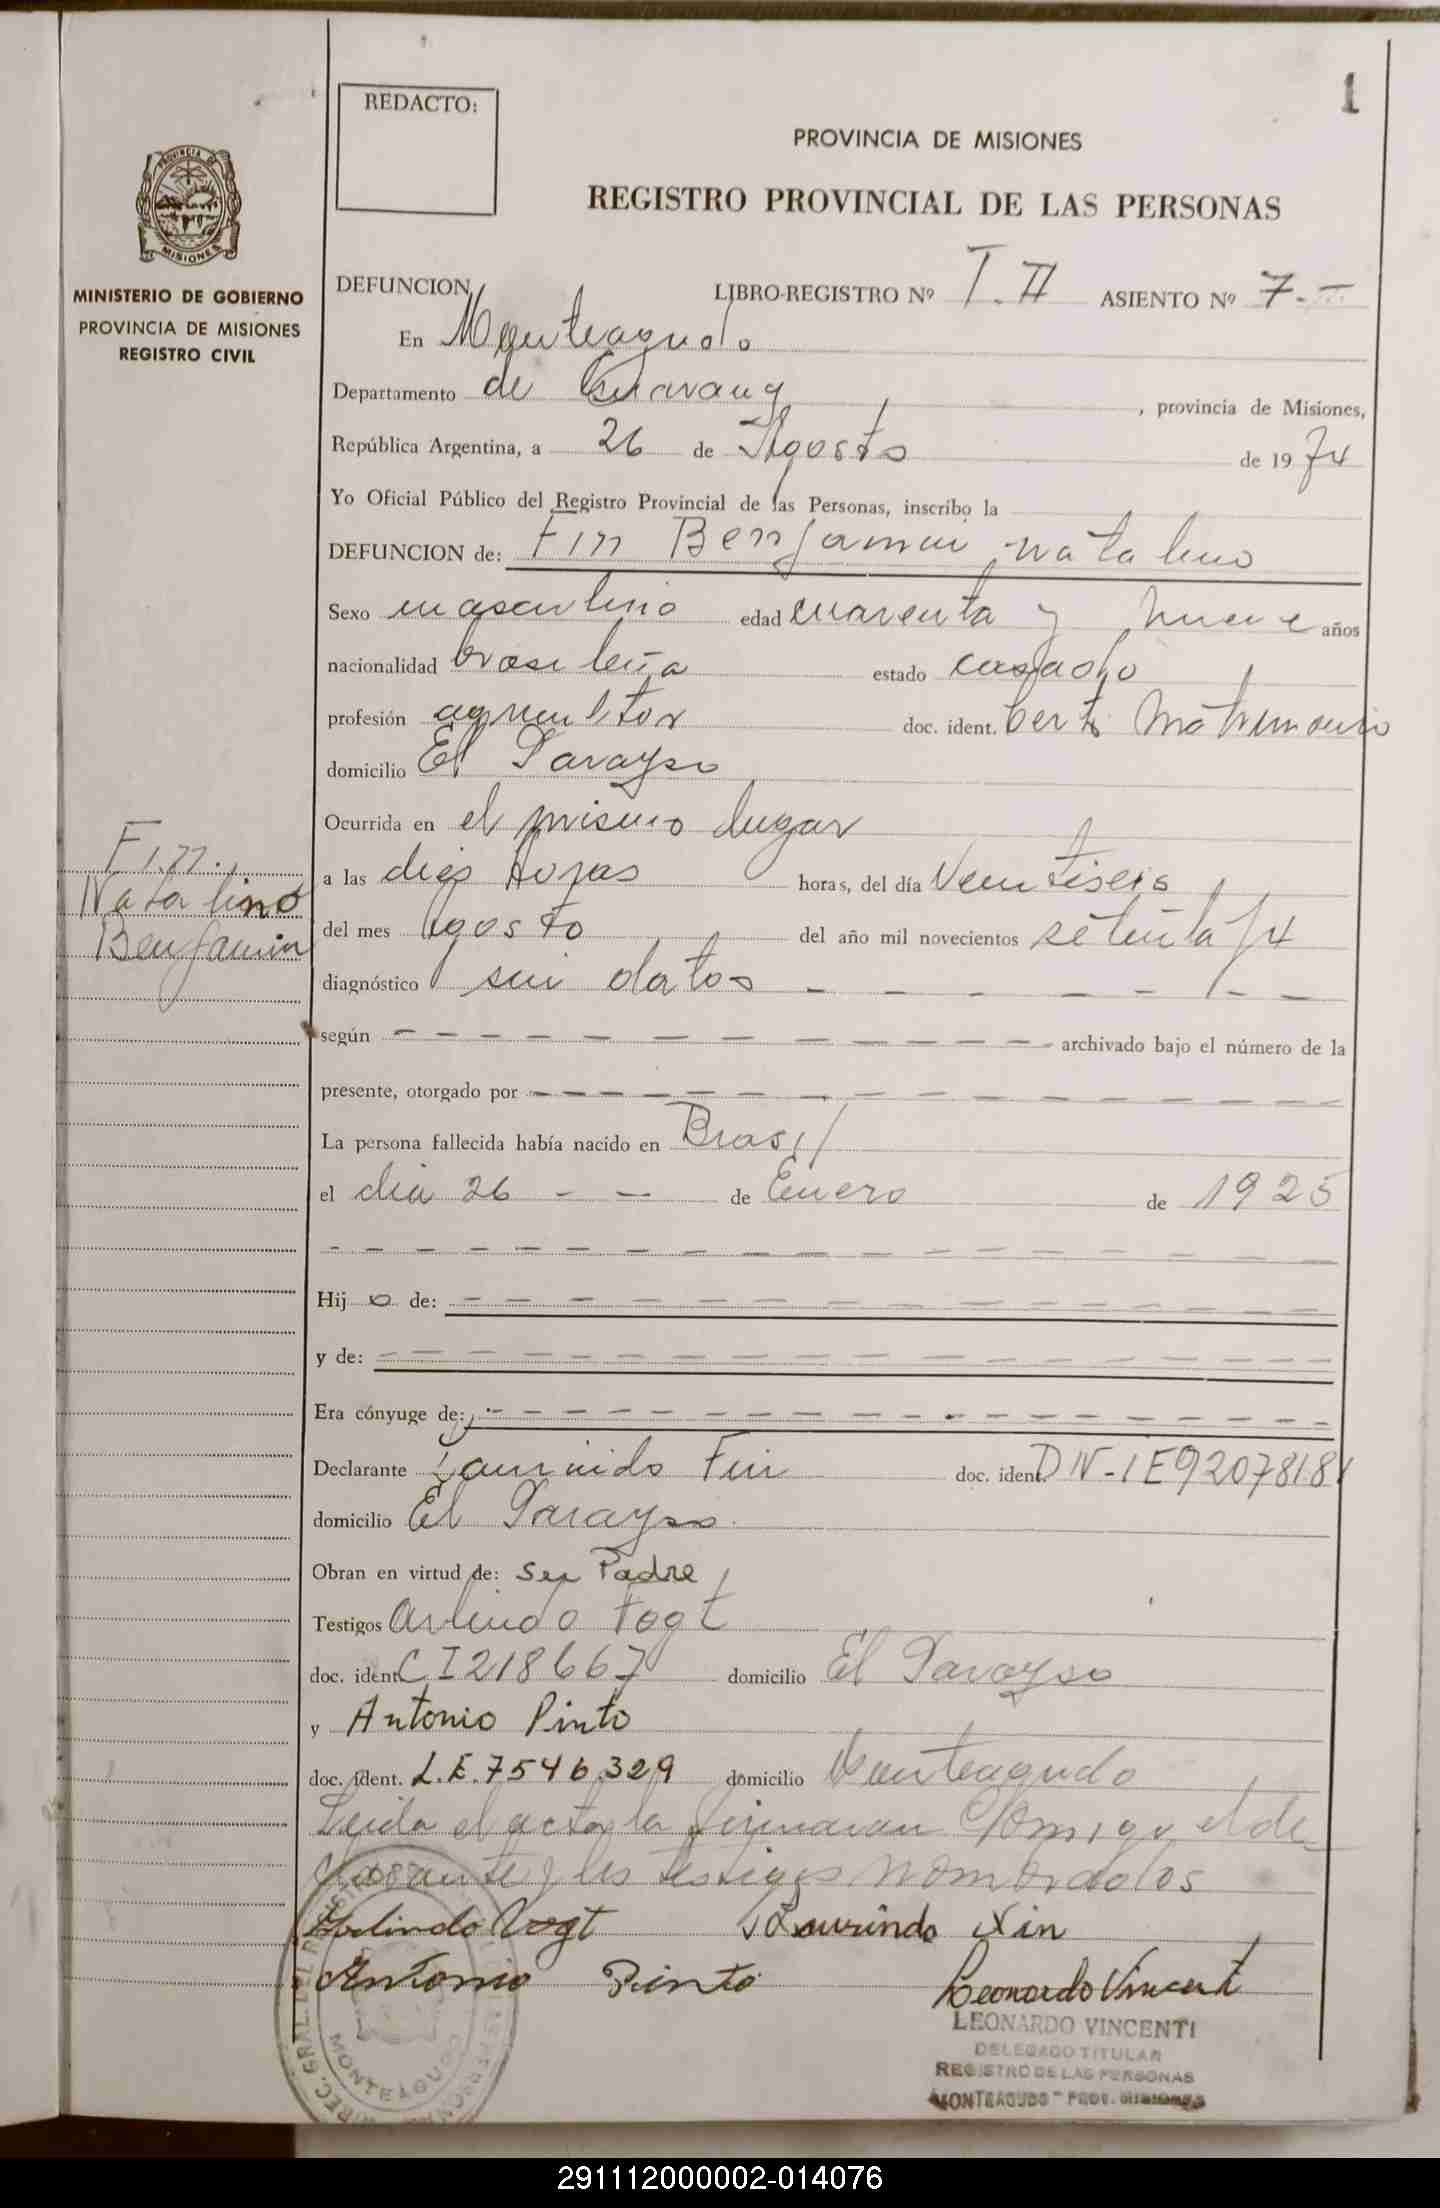 1
REDACTO:
PROVINCIA DE MISIONES
REGISTRO PROVINCIAL DE LAS PERSONAS
PROVINCIA DE MISIONES
MINISTERIO DE GOBIERNO
PROVINCIA DE MISIONES
REGISTRO CIVIL
DEFUNCION LIBRO-REGISTRO Nº T. II ASIENTO Nº 7.-
En Monteagudo
Departamento de Guarany, provincia de Misiones,
República Argentina, a 26 de Agosto de 1974
Yo Oficial Público del Registro Provincial de las Personas, inscribo la
DEFUNCION de: Fin Benjamin Natalino
Sexo masculino edad cuarenta y nueve años
nacionalidad brasileña estado casado
profesión agricultor doc. ident. Cert. Matrimonio
domicilio El Parayso
Ocurrida en el mismo lugar
a las dies horas horas, del día Veintiseis
del mes Agosto del año mil novecientos setenta y 4
diagnóstico sin datos - - - - - -
según - - - - - - - - - - archivado bajo el número de la
presente, otorgado por - - - - - - - - - - -
La persona fallecida había nacido en Brasil
el dia 26 - - de Enero de 1925
- - - - - - - - - - - - - - - -
Hijo de: - - - - - - - - - - - - -
y de: - - - - - - - - - - - - - -
Era cónyuge de: - - - - - - - - - - - - -
Declarante Laurindo Fin doc. ident. DN-IE9207818
domicilio El Parayso.
Obran en virtud de: Su Padre
Testigos Arlindo Vogt
doc. ident. CI218667 domicilio El Parayso
y Antonio Pinto
doc. ident. L.E.7546329 domicilio Monteagudo
Leida el acta la firmaran Comigo el de-
clarante y los testigos nombrados
Arlindo Vogt Laurindo Fin
Antonio Pinto Leonardo Vincenti
LEONARDO VINCENTI
DELEGADO TITULAR
REGISTRO DE LAS PERSONAS
MONTEAGUDO - PROV. MISIONES
MONTEAGUDO
Fin.
Natalino
Benjamin
291112000002-014076